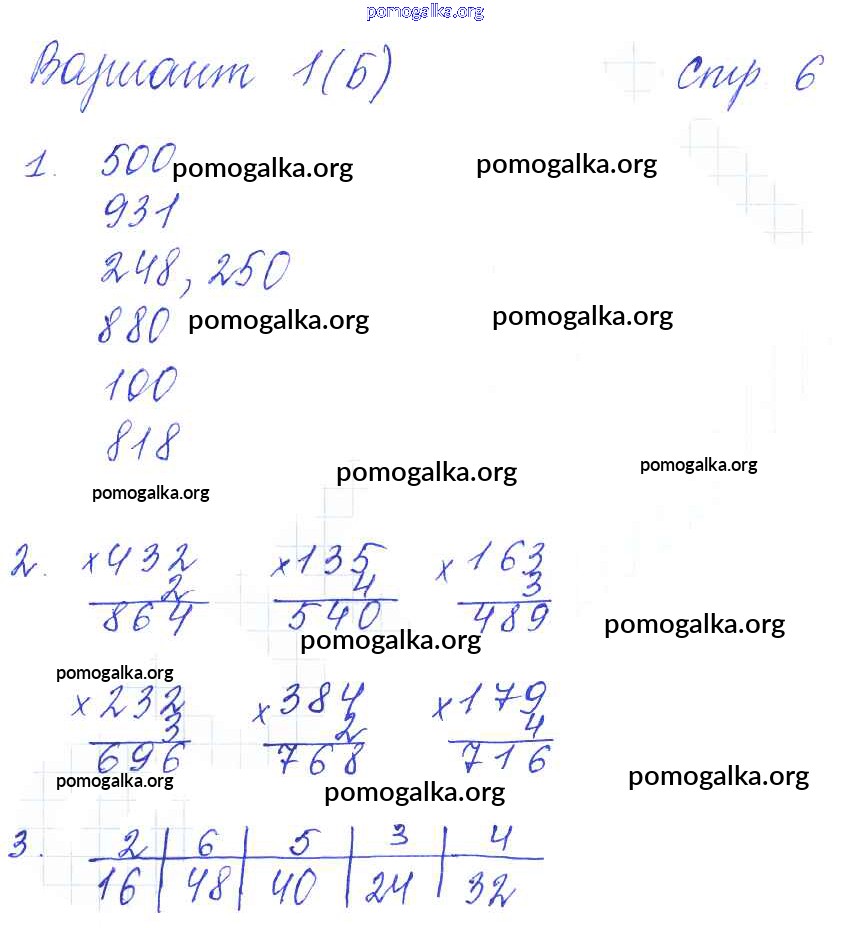 pomogalka.org
Вариант 1(Б) Стр 6
1. 500 pomogalka.org pomogalka.org
931
248, 250
880 pomogalka.org pomogalka.org
100
818
pomogalka.org pomogalka.org pomogalka.org
2. ×432 ×135 ×163
2 4 3
864 540 489
pomogalka.org pomogalka.org
pomogalka.org
×232 ×384 ×179
3 2 4
696 768 716
pomogalka.org pomogalka.org pomogalka.org
3. 2 6 5 3 4
16 48 40 24 32